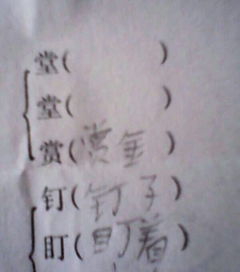 堂(　　)
堂(　　)
赏(赏金)
钉(钉子)
盯(盯着)